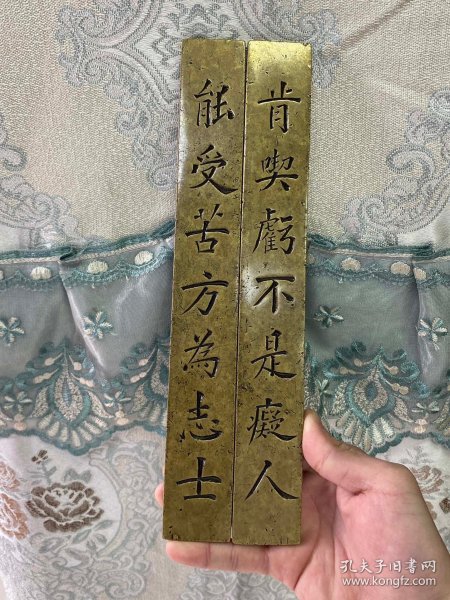 肯喫虧不是癡人
能受苦方為志士
孔夫子旧书网
www.kongfz.com